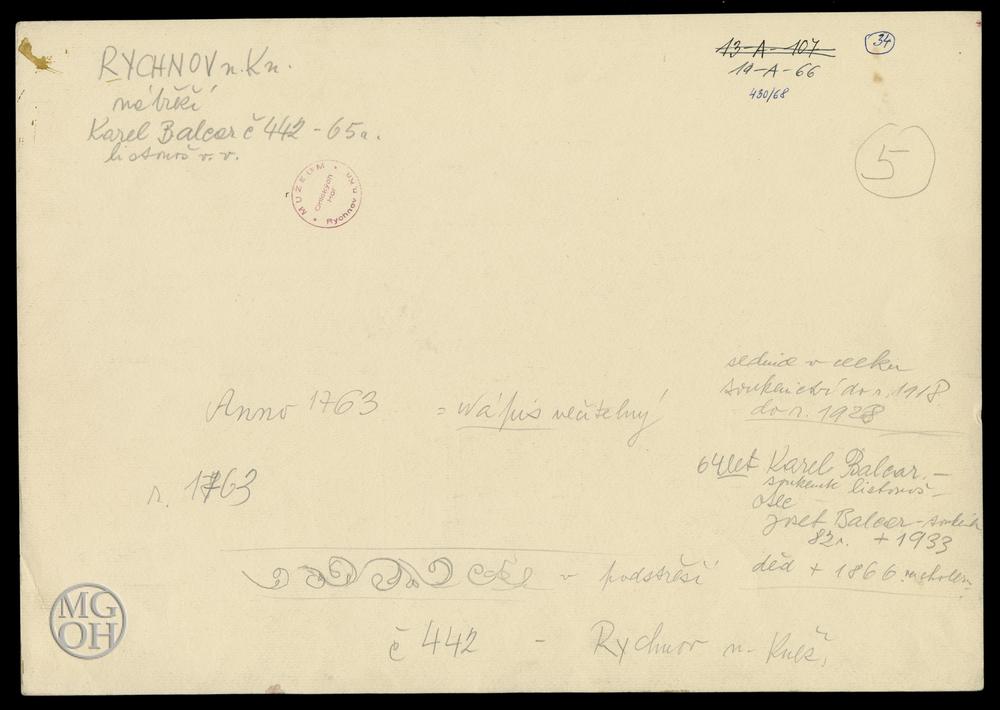 RYCHNOV n. Kn.
nábřeží
Karel Balcar č 442 - 65 a.
listonoš v. v.
13-A-107
19-A-66
430/68
34
5
MUZEUM
Orlických
hor
Rychnov n.Kn.
sednice v celku
soukenictví do r. 1918
do r. 1928
Anno 1763 = nápis nečitelný
64 let Karel Balcar -
soukeník listonoš -
otec
Josef Balcar - soukeník
82 r. + 1933
r. 1763
děd + 1866 na choleru
v podstřeší
č 442 - Rychnov n. Kněž.
MG
OH